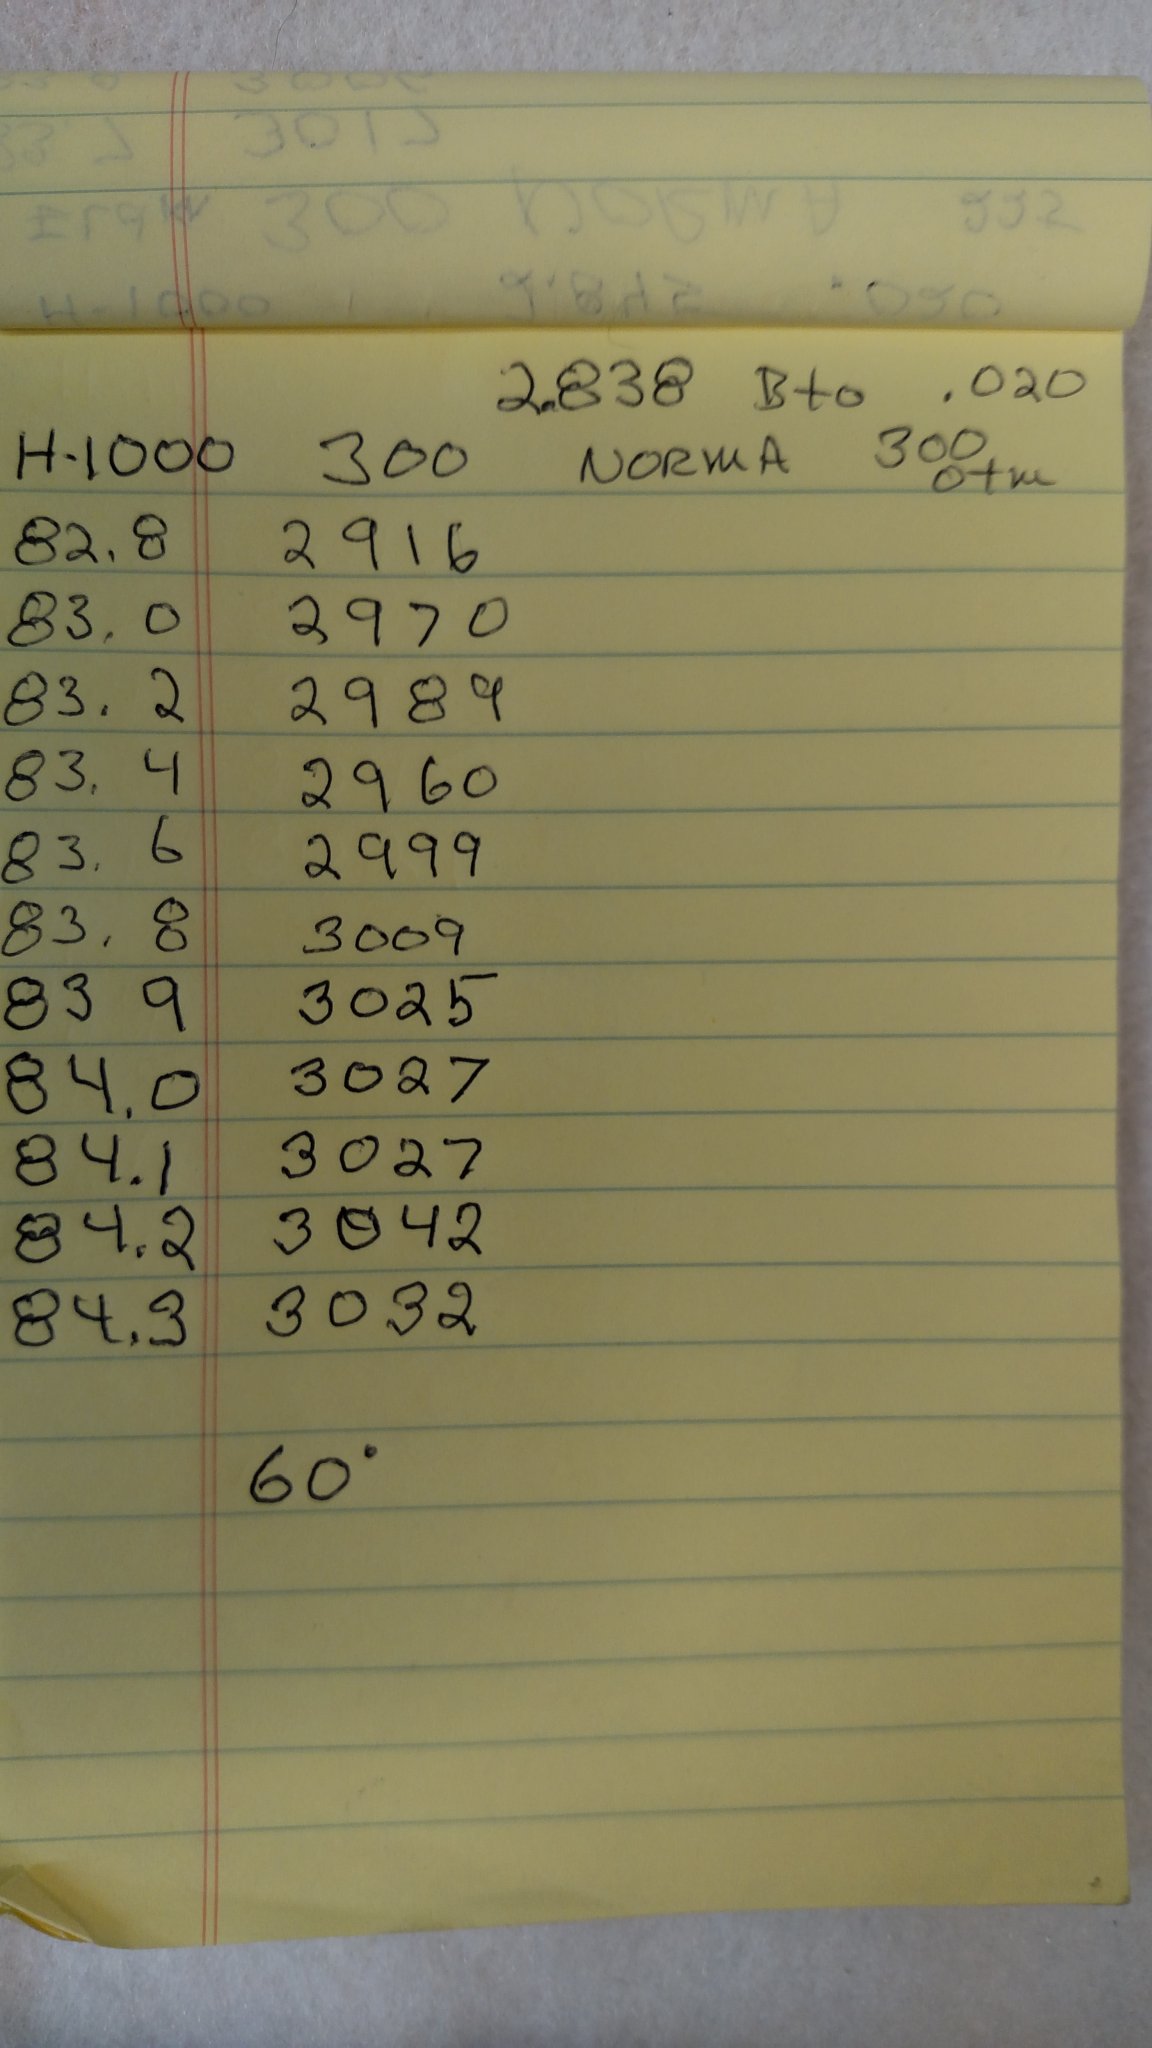 3017
300 NORMA
H-1000 .020
2.838 Bto .020
H-1000 300 NORMA 300
otm
82.8 2916
83.0 2970
83.2 2989
83.4 2960
83.6 2999
83.8 3009
83 9 3025
84.0 3027
84.1 3027
84.2 3042
84.3 3032
60°